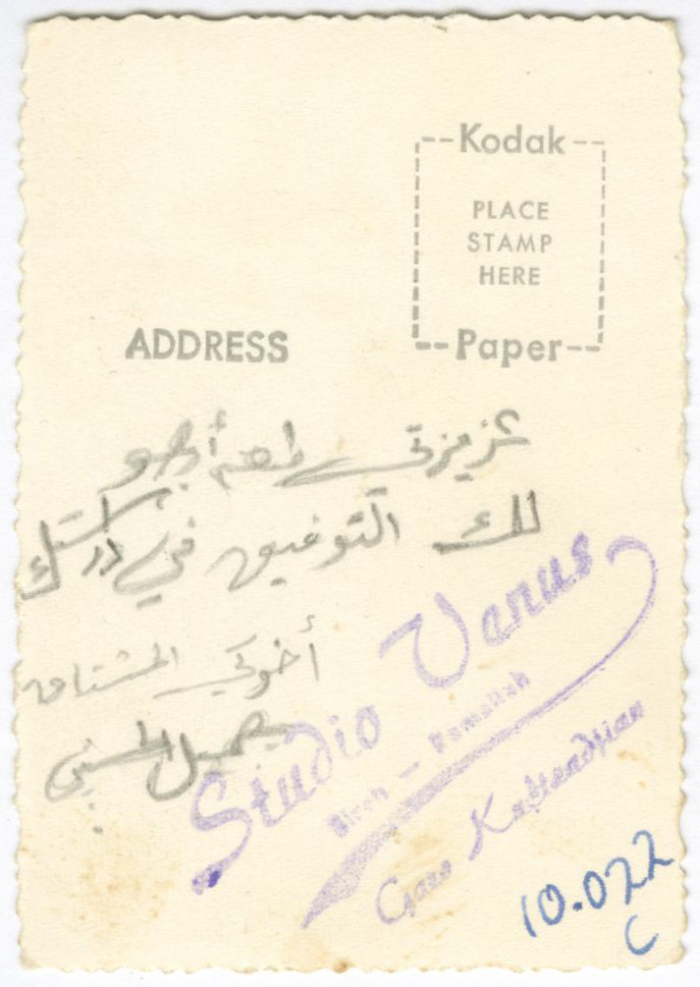 Kodak
PLACE
STAMP
HERE
Paper
ADDRESS
عزيزتي أرجو
لك التوفيق في دراستك
أخوكي المشتاق
جميل الحسيني
Studio Venus
Bireh — Ramallah
Garo
10.022
C